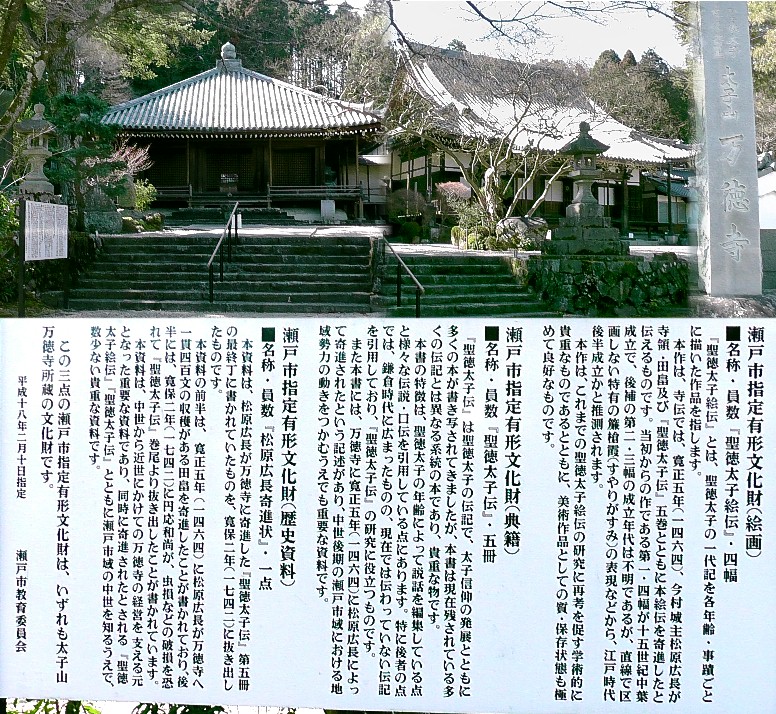 太子山
万徳寺
瀬戸市指定有形文化財(絵画)
■名称・員数『聖徳太子絵伝』・四幅
『聖徳太子絵伝』とは、聖徳太子の一代記を各年齢・事蹟ごと
に描いた作品を指します。
本作は、寺伝では、寛正五年(一四六四)、今村城主松原広長が
寺領・田畠及び『聖徳太子伝』五巻とともに本絵伝を寄進したと
伝えるものです。当初からの作である第一・四幅が十五世紀中葉
成立で、後補の第二・三幅の成立年代は不明であるが、直線で区
画しない特有の簾槍霞(すやりがすみ)の表現などから、江戸時代
後半成立かと推測されます。
本作は、これまでの聖徳太子絵伝の研究に再考を促す学術的に
貴重なものであるとともに、美術作品としての質・保存状態も極
めて良好なものです。
瀬戸市指定有形文化財(典籍)
■名称・員数『聖徳太子伝』・五冊
『聖徳太子伝』は聖徳太子の伝記で、太子信仰の発展とともに
多くの本が書き写されてきましたが、本書は現在残されている多
くの伝記とは異なる系統の本であり、貴重な物です。
本書の特徴は、聖徳太子の年齢によって説話を編集している点
と様々な伝説・口伝を引用している点にあります。特に後者の点
では、鎌倉時代に広まったものの、現在では伝わっていない伝記
を引用しており、『聖徳太子伝』の研究に役立つものです。
また本書には、万徳寺に寛正五年(一四六四)に松原広長によっ
て寄進されたという記述があり、中世後期の瀬戸市域における地
域勢力の動きをつかむうえでも重要な資料です。
瀬戸市指定有形文化財(歴史資料)
■名称・員数『松原広長寄進状』・一点
本資料は、松原広長が万徳寺に寄進した『聖徳太子伝』第五冊
の最終丁に書かれていたものを、寛保二年(一七四二)に抜き出し
たものです。
本資料の前半は、寛正五年(一四六四)に松原広長が万徳寺へ
一貫四百文の収穫がある田畠を寄進したことが書かれており、後
半には、寛保二年(一七四二)に円応和尚が、虫損などの破損を恐
れて『聖徳太子伝』巻尾より抜き出したことが書かれています。
本資料は、中世から近世にかけての万徳寺の経営を支える元
となった重要な資料であり、同時に寄進されたとされる『聖徳
太子絵伝』『聖徳太子伝』とともに瀬戸市域の中世を知るうえで、
数少ない貴重な資料です。
この三点の瀬戸市指定有形文化財は、いずれも太子山
万徳寺所蔵の文化財です。
平成十八年二月十日指定
瀬戸市教育委員会